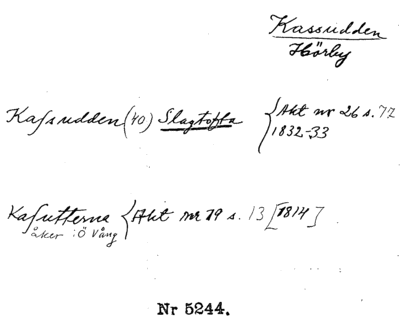 Kassudden
Hörby
Kaſsudden (40) Slagtofta { Akt nr 26 s. 72
1832-33
Kaſutterne { Akt nr 19 s. 13 [1814]
åker i Ö Vång
Nr 5244.